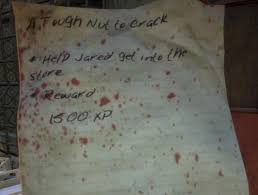 A Tough Nut to Crack
• Help Jared get into the
store
• Reward
1500 XP